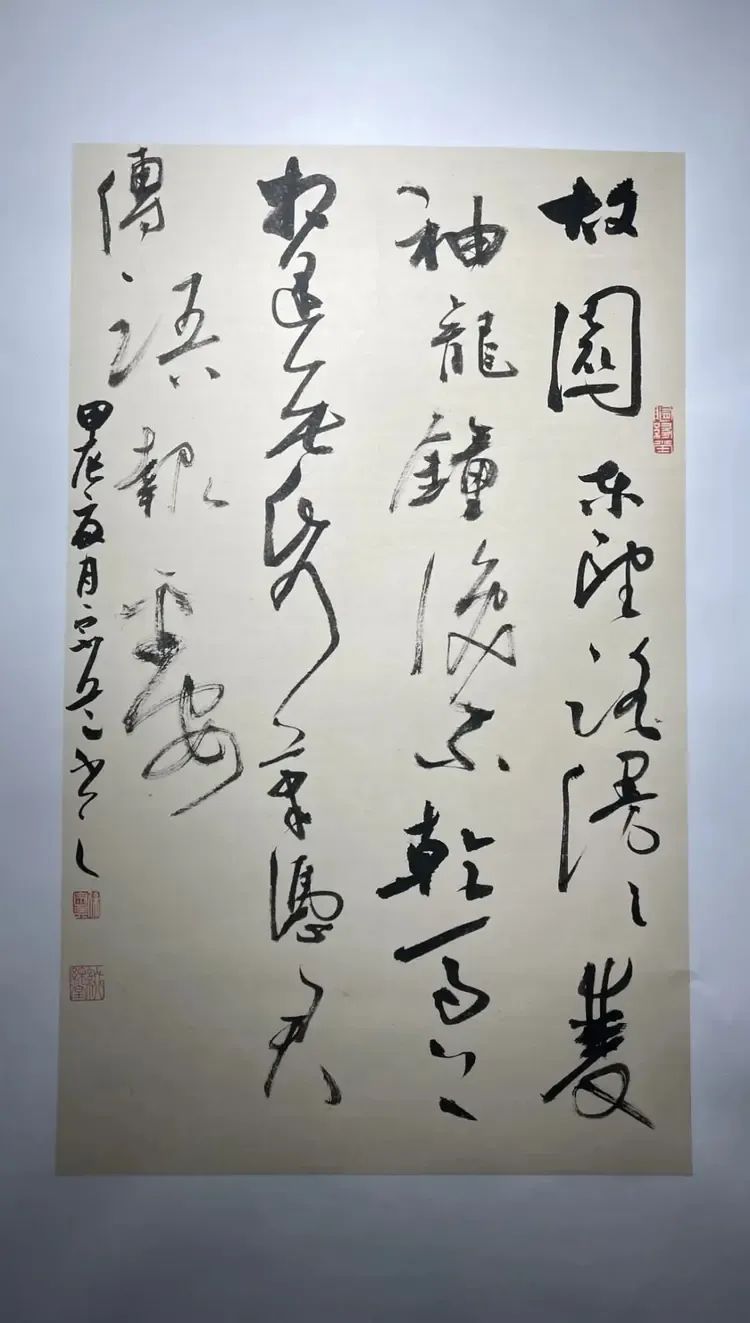 故園東望路漫〻雙
袖龍鐘淚不乾馬上
相逢無紙筆憑君
傳語報平安
甲辰夏月
書之